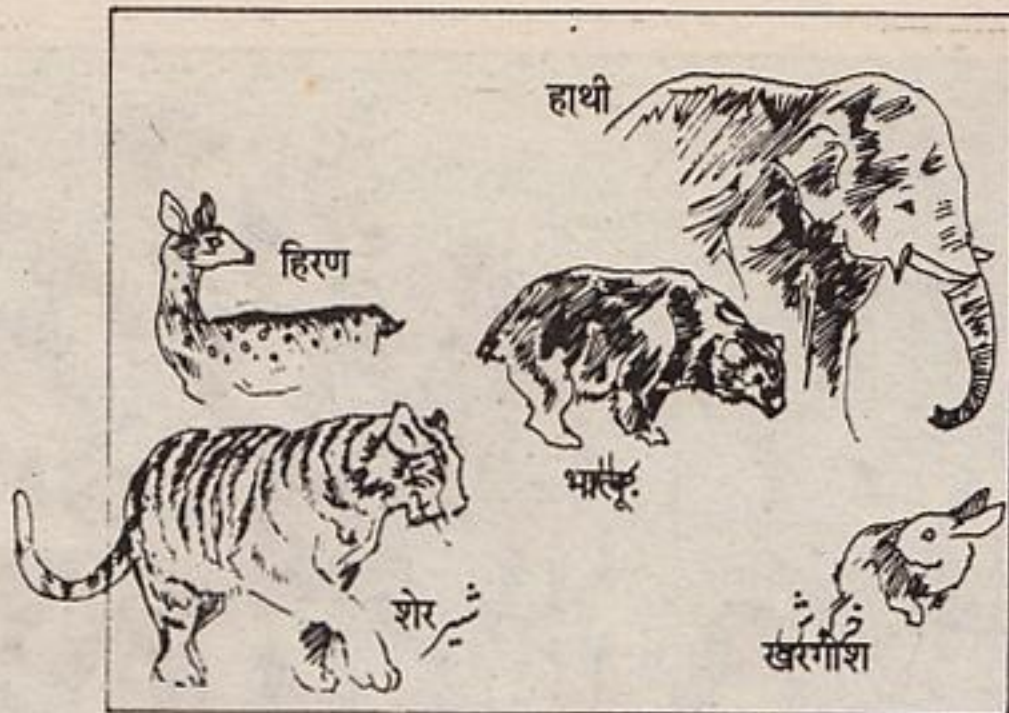 हाथी
हिरण
भालू
शेर شیر
खरगोश